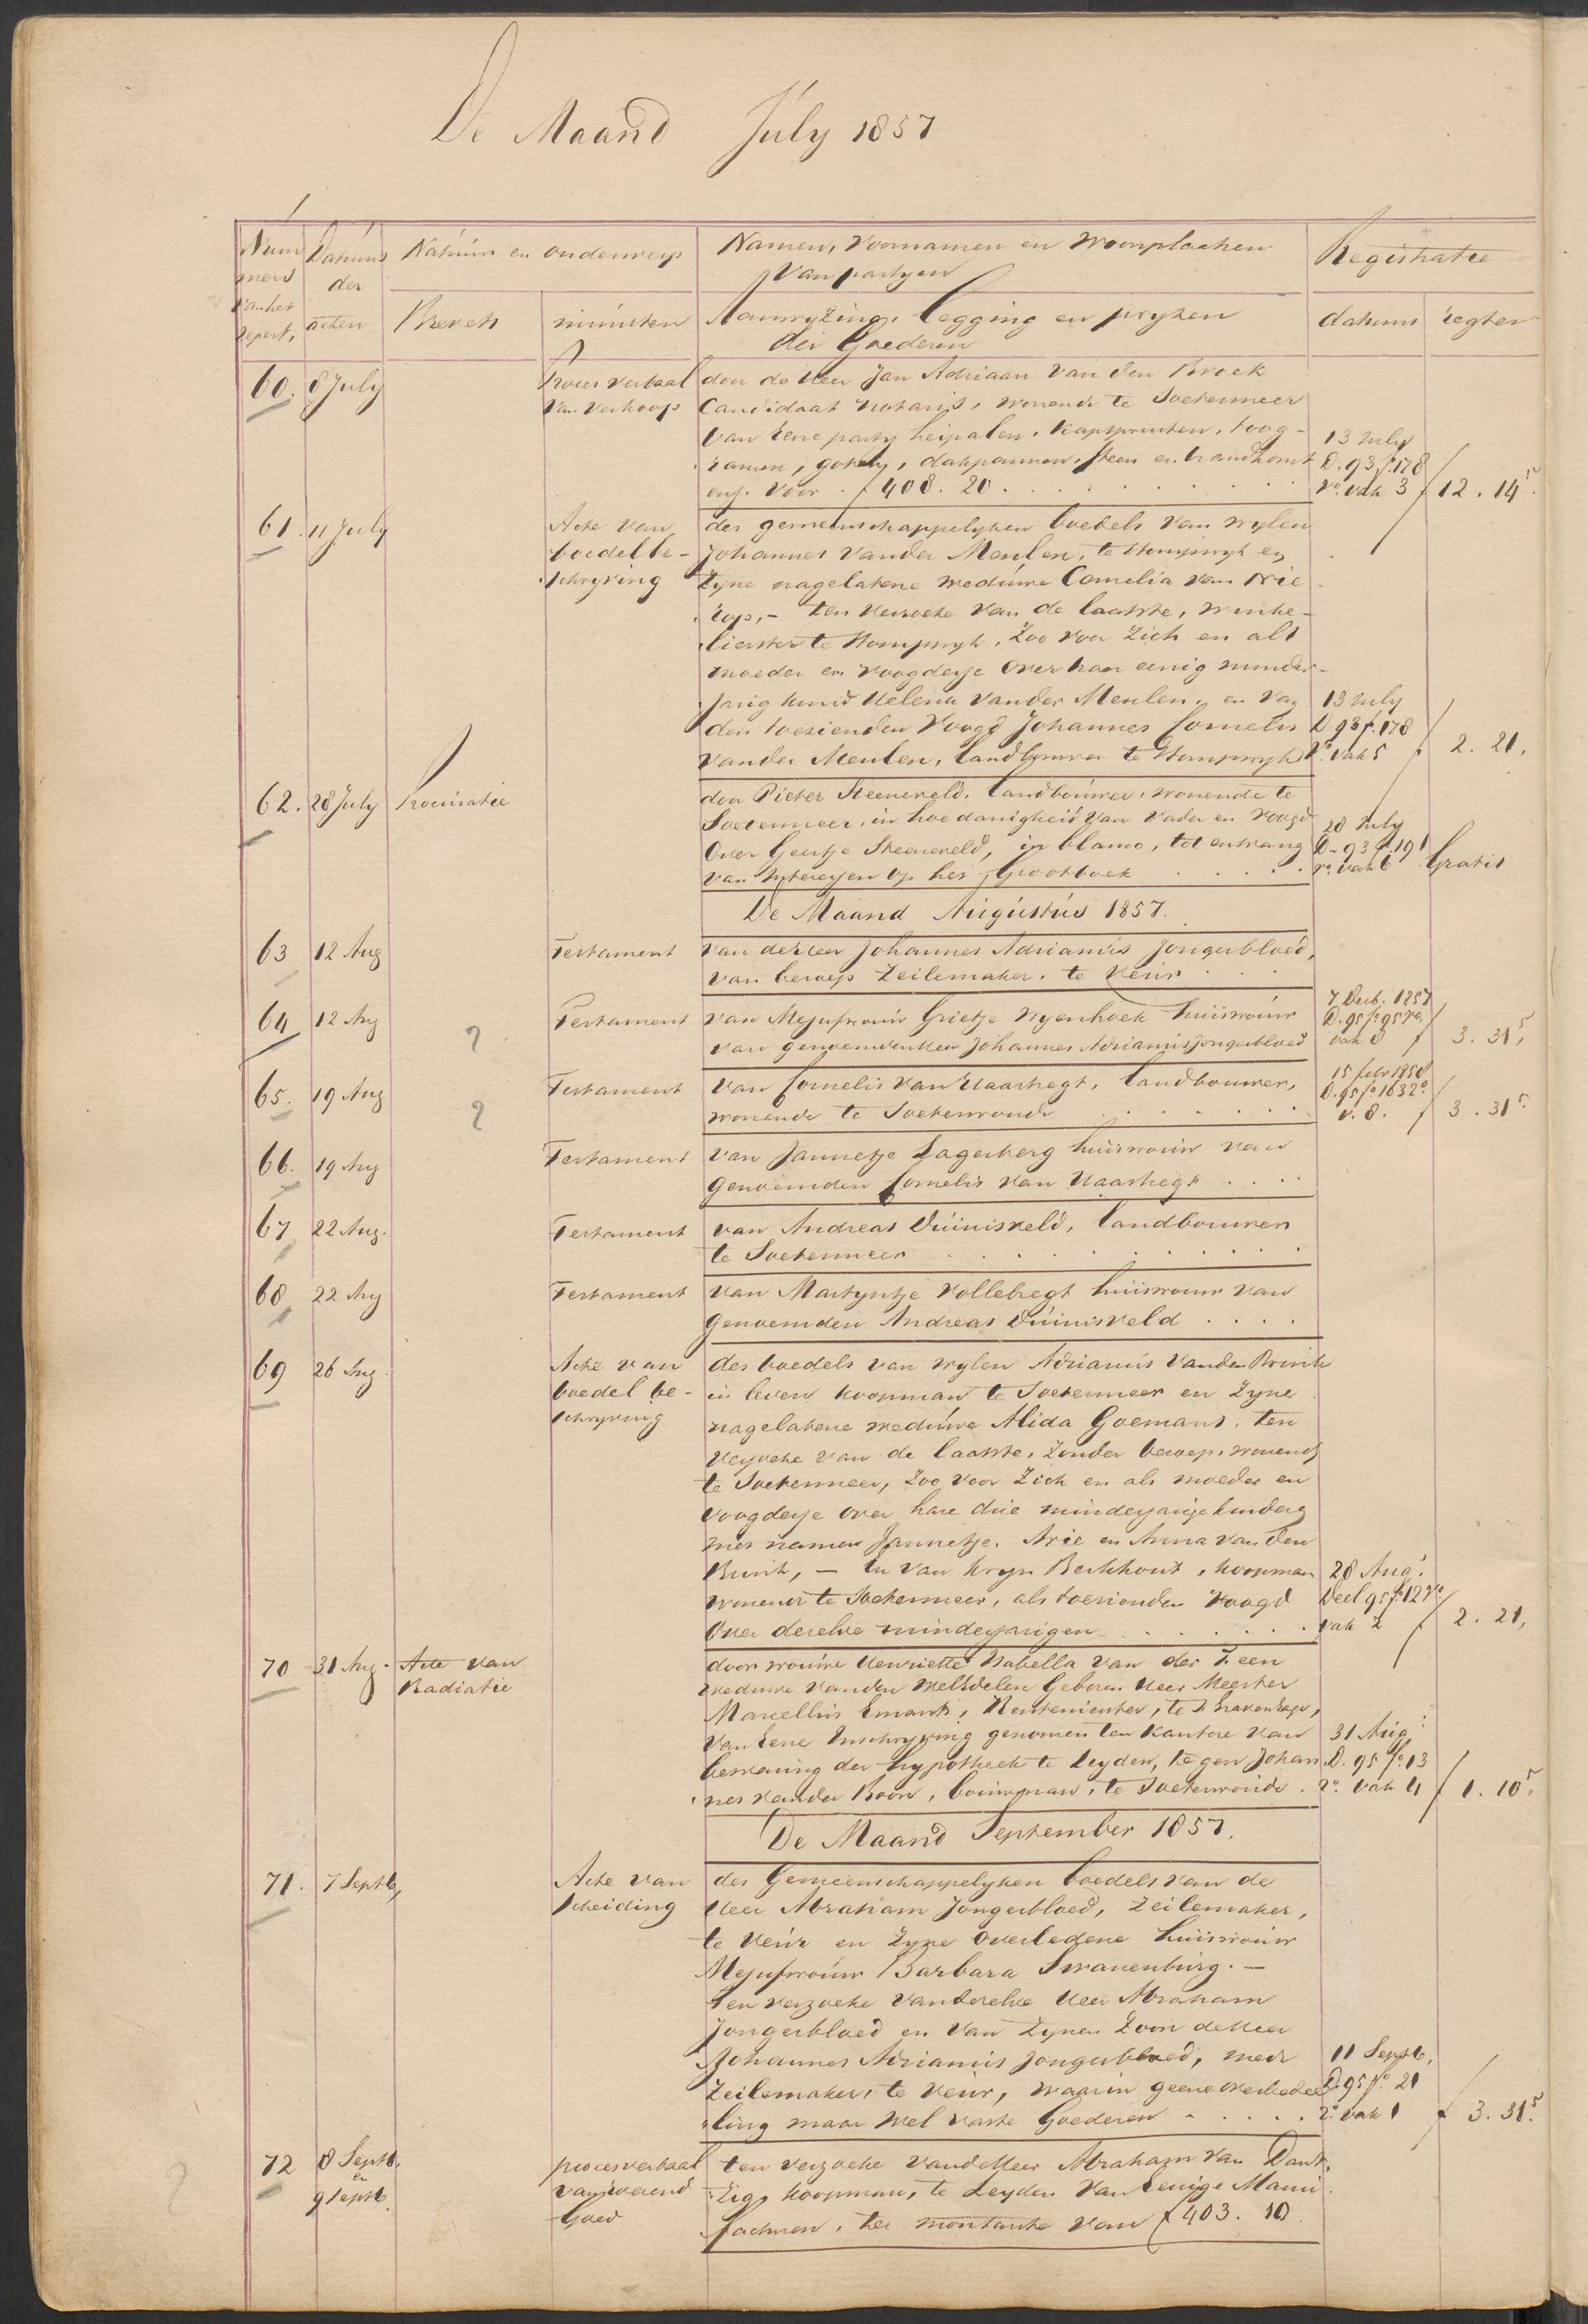 De Maand July 1857
Num
mers
van het
repert,
Datums
der
acten
Natuur en onderwerp
Brevets
minuten
Namen, Voornamen en Woonplaatsen
van partyen
Aanwyzing, legging en pryzen
der Goederen
Registratie
datums
regten
60. 8 July
Proces verbaal
van verkoop
door de Heer Jan Adriaan van den Broek
Candidaat notaris, wonende te Soetermeer
van eene party heipalen, kapspruiten, toog-
ramen, goten, dakpannen, steen en brandhout
enz. voor f 408. 20.
13 July
D. 93 f. 178
vo. vak 3 f 12. 14 5.
61. 11 July
Acte van
boedel be-
schryving
des gemeenschappelyken boedels van wylen
Johannes van der Meulen, te Stompwyk en
zyne nagelatene weduwe Cornelia van Rie
rop,- ten verzoeke van de laatste, winke-
lierster te Stompwyk, zoo voor zich en als
moeder en voogdesse over haar eenig minder-
jarig kind Helena van der Meulen, en van
den toezienden Voogd Johannes Cornelis
van der Meulen, landbouwer te Stompwyk
13 July
D 93 f. 178
vo. vak 5 f 2. 21.
62. 28 July Procuratie
door Pieter Steeneveld, landbouwer, wonende te
Soetermeer, in hoedanigheid van vader en voogd
over Geertje Steeneveld, in blanco, tot ontvang
van Interessen op het Grootboek
28 July
D. 93 f. 191
ro. vak 6 Gratis
De Maand Augustus 1857.
63 12 Aug Testament
van de Heer Johannes Adrianus Jongerbloed,
van beroep Zeilemaker, te Veur
64 12 Aug ? Testament
van Mejufvrouw Grietje Wyenhoek huisvrouw
van genoemden Heer Johannes Adrianus Jongerbloed
7 Decb. 1857
D. 95 fo 95 ro,
vak 8 f 3. 31 5,
65. 19 Aug ? Testament
van Cornelis van Haastregt, landbouwer,
wonende te Soeterwoude
15 febr 1858
D. 95 fo 163 ro
v. 8. f 3. 31 5.
66. 19 Aug Testament
van Jannetje Lagerberg huisvrouw van
genoemden Cornelis van Haastregt
67 22 Aug. Testament
van Andreas Duinisveld, landbouwer
te Soetermeer
68 22 Aug Testament
van Martyntje Vollebregt huisvrouw van
genoemden Andreas Duinisveld
69 26 Aug.
Acte van
boedel be-
schryving
des boedels van wylen Adrianus van den Brink
in leven koopman te Soetermeer en zyne
nagelatene weduwe Alida Goemans, ten
verzoeke van de laatste, zonder beroep, wonende
te Soetermeer, zoo voor zich en als moeder en
voogdesse over hare drie minderjarige kinders
met namen Jannetje, Arie en Anna van den
Brink, — en van Kryn Berkhout, koopman
wonende te Soetermeer, als toezienden Voogd
over dezelve minderjarigen
28 Aug.
Deel 95 fo 12 vo
vak 2 f 2. 21,
70 31 Aug. Acte van
Radiatie
door vrouwe Henriette Isabella van der Feen
weduwe van den weledelen Geboren Heer Meester
Marcellus Emants, Rentenierster, te s'Gravenhage,
van eene Inschryving genomen ten Kantore van
bewaring der hypotheek te Leyden, tegen Johan-
nes van der Boon, bouwman, te Soeterwoude.
31 Aug:
D. 95 fo. 13
ro. vak 4 f 1. 10 5.
De Maand September 1857.
71. 7 Septb,
Acte van
Scheiding
des Gemeenschappelyken boedels van de
Heer Abraham Jongerbloed, Zeilemaker,
te Veur en zyne overledene huisvrouw
Mejufvrouw Barbara Swanenburg. —
ten verzoeke van dezelve Heer Abraham
Jongerbloed en van zynen zoon de Heer
Johannes Adrianus Jongerbloed, mede
Zeilemaker, te Veur, waarin geene overbedee-
ling maar wel vaste Goederen
11 Septb,
D. 95 fo. 21
ro. vak 1 f 3. 31 5.
72 8 Septb.
en
9 Septb.
procesverbaal
van roerend
Goed
ten verzoeke van de Heer Abraham van Dant-
zig, koopman, te Leyden van eenige Manu-
facturen, ter montante van f 403. 10.
?